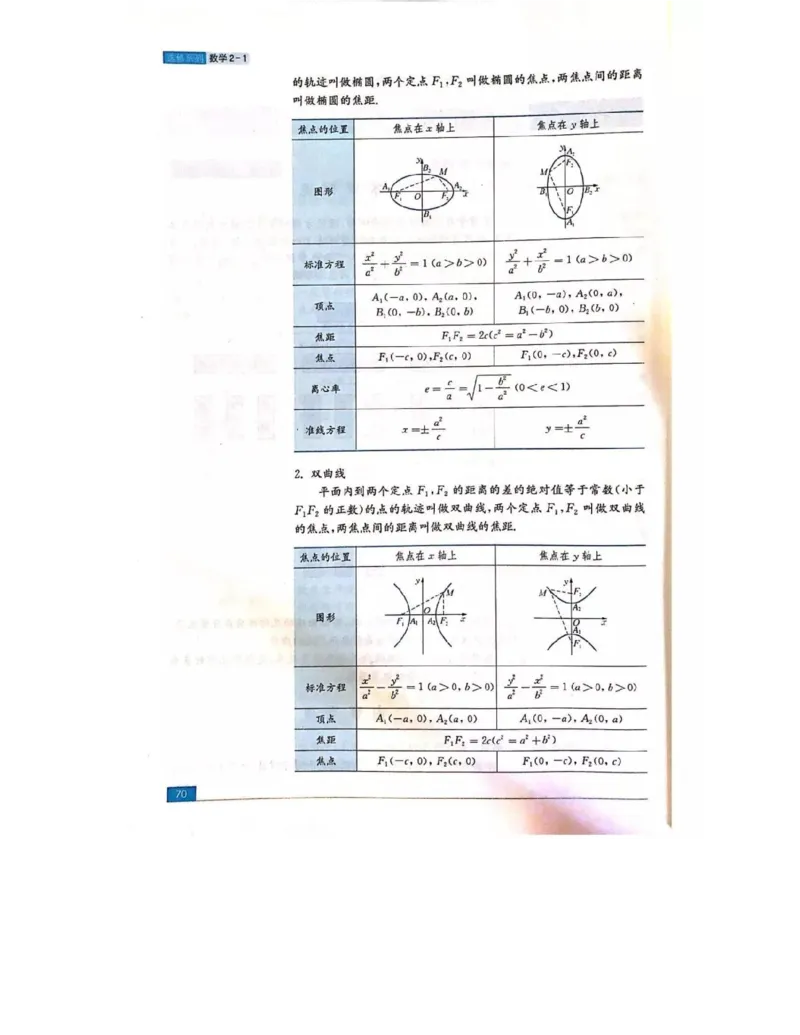 选修系列 数学2-1
的轨迹叫做椭圆,两个定点 F₁,F₂ 叫做椭圆的焦点,两焦点间的距离
叫做椭圆的焦距.
焦点的位置 焦点在 x 轴上 焦点在 y 轴上
图形
y B₂ M A₁ F₁ O F₂ A₂ x B₁
y A₂ F₂ M B₁ O B₂ x F₁ A₁
标准方程 x²/a² + y²/b² = 1 (a>b>0) y²/a² + x²/b² = 1 (a>b>0)
顶点 A₁(-a, 0), A₂(a, 0), A₁(0, -a), A₂(0, a),
B₁(0, -b), B₂(0, b) B₁(-b, 0), B₂(b, 0)
焦距 F₁F₂ = 2c(c² = a² - b²)
焦点 F₁(-c, 0),F₂(c, 0) F₁(0, -c),F₂(0, c)
离心率 e = c/a = √(1 - b²/a²) (0<e<1)
准线方程 x = ± a²/c y = ± a²/c
2. 双曲线
平面内到两个定点 F₁,F₂ 的距离的差的绝对值等于常数(小于
F₁F₂ 的正数)的点的轨迹叫做双曲线,两个定点 F₁,F₂ 叫做双曲线
的焦点,两焦点间的距离叫做双曲线的焦距.
焦点的位置 焦点在 x 轴上 焦点在 y 轴上
图形
y M O F₁ A₁ A₂ F₂ x
y M F₂ A₂ O x A₁ F₁
标准方程 x²/a² - y²/b² = 1 (a>0, b>0) y²/a² - x²/b² = 1 (a>0, b>0)
顶点 A₁(-a, 0), A₂(a, 0) A₁(0, -a), A₂(0, a)
焦距 F₁F₂ = 2c(c² = a² + b²)
焦点 F₁(-c, 0), F₂(c, 0) F₁(0, -c), F₂(0, c)
70